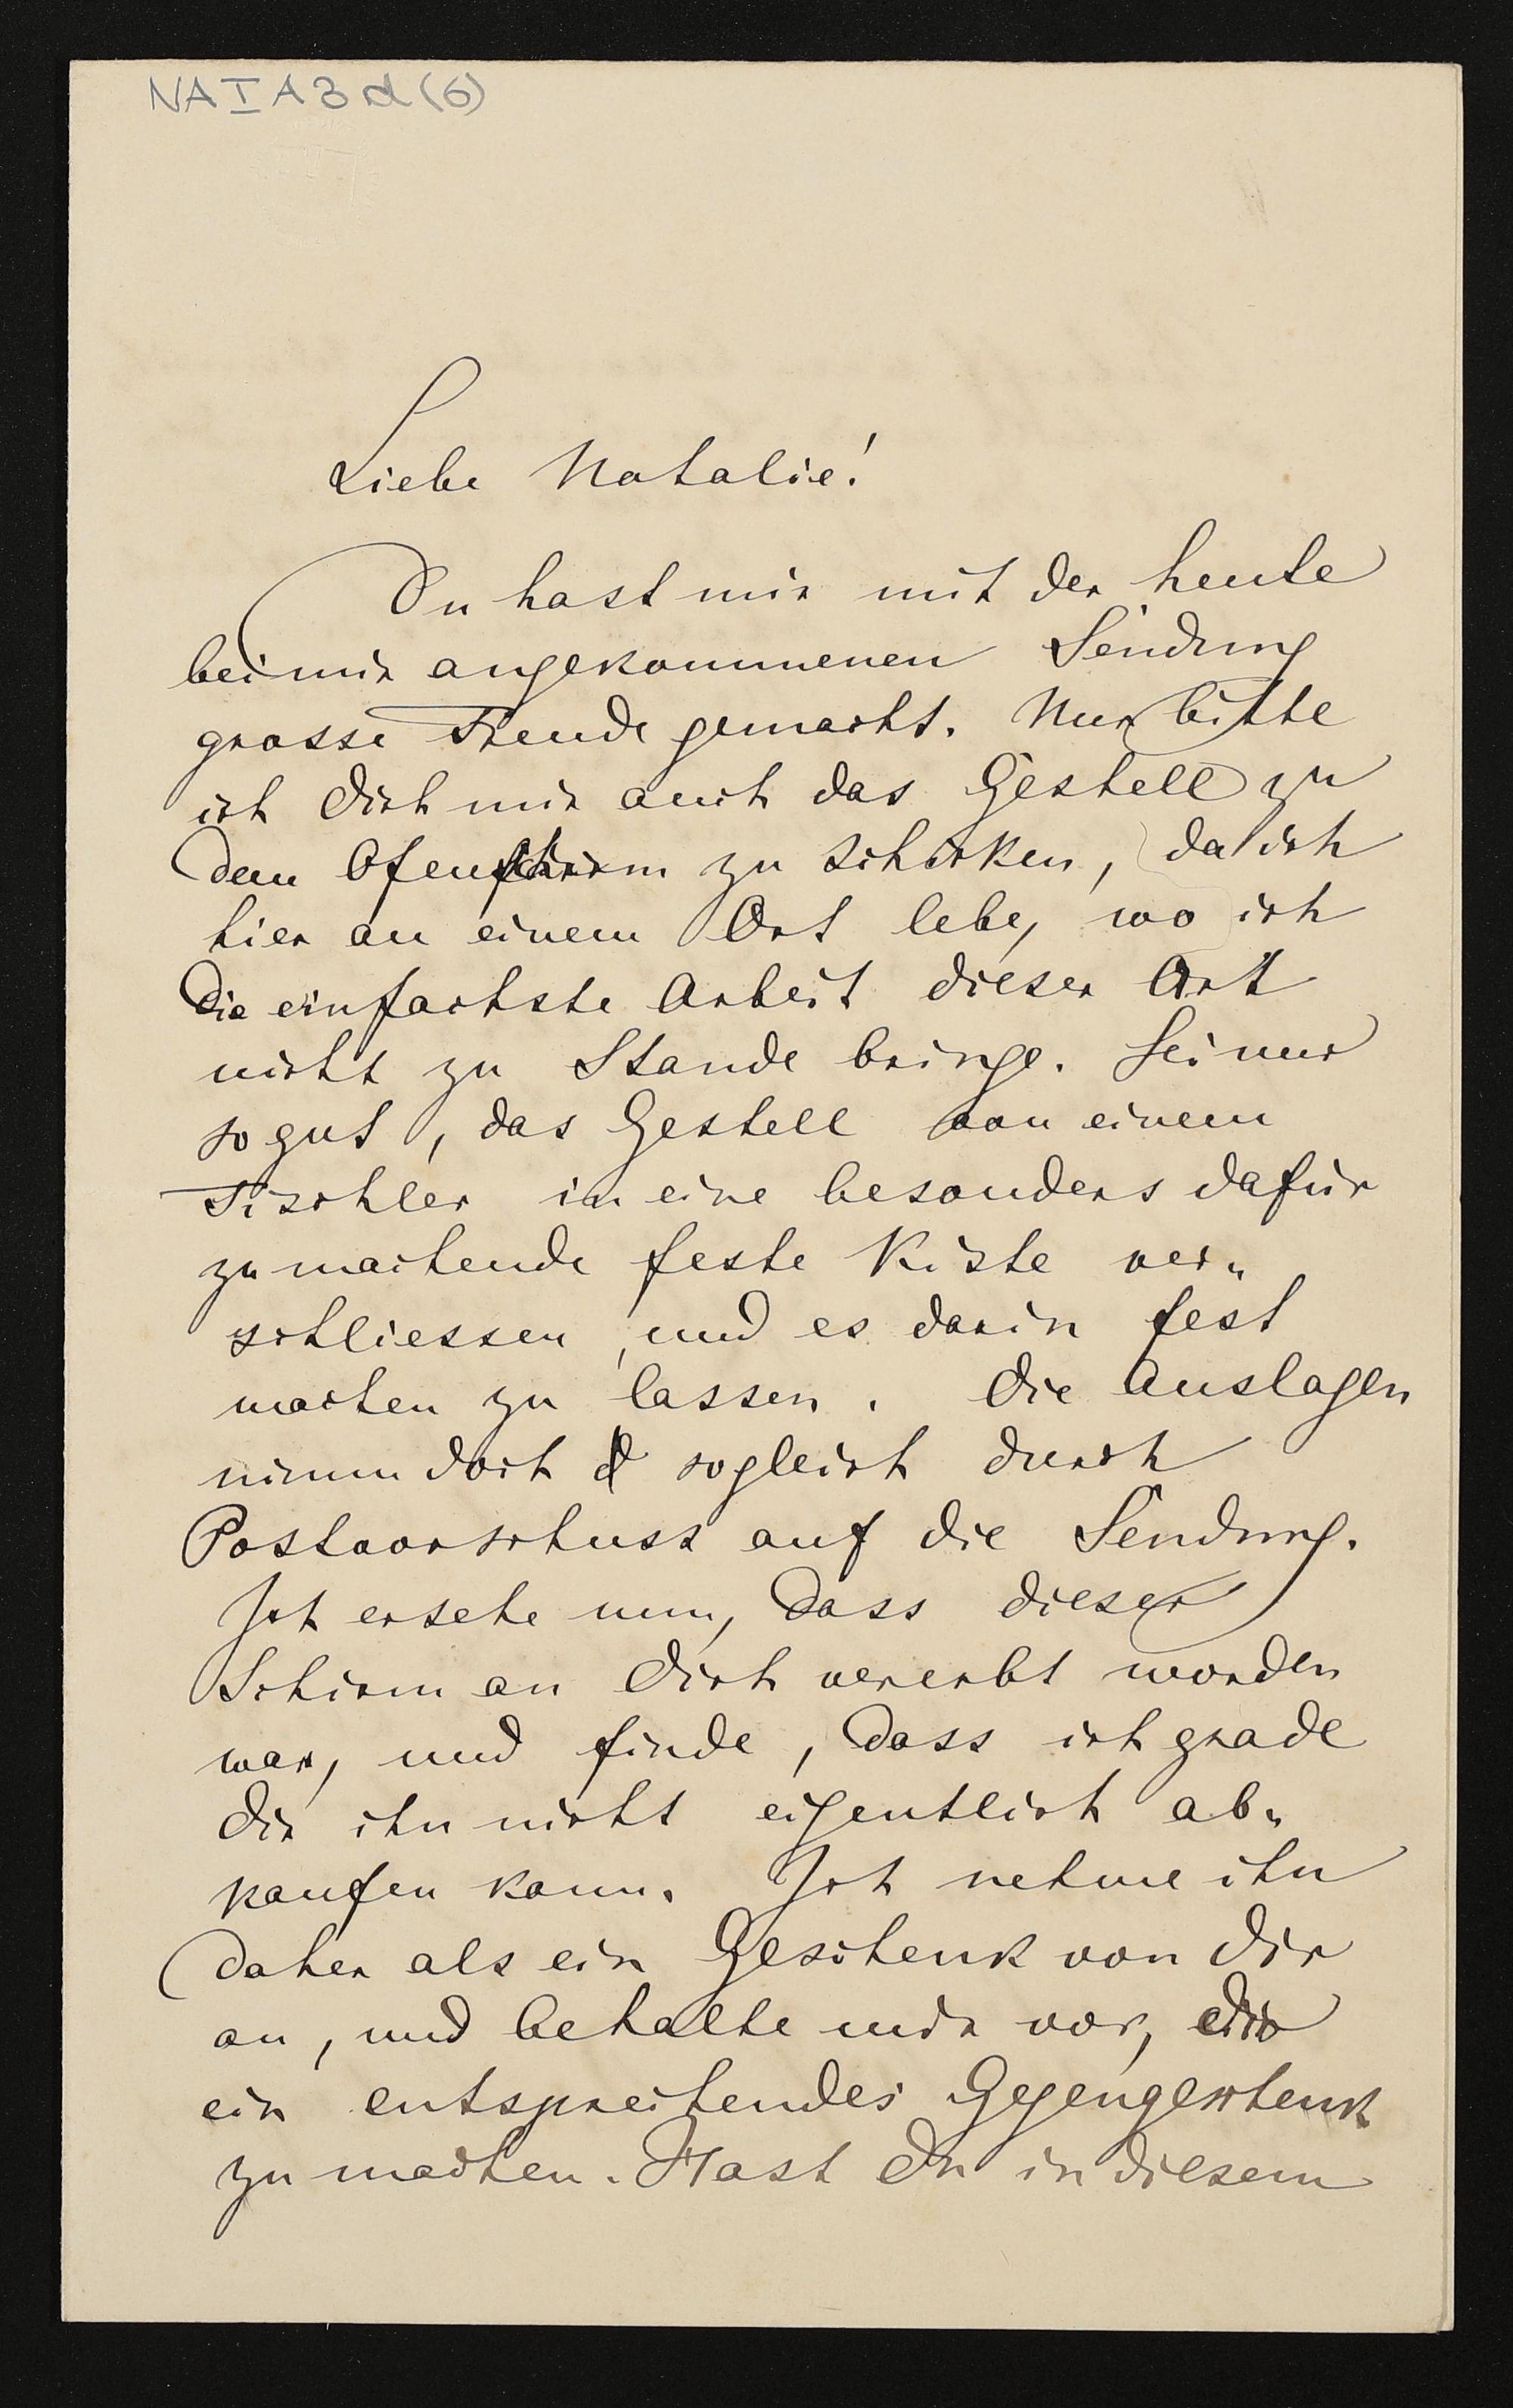 NA I A 3 d (6)
Liebe Natalie!
Du hast mir mit der heute
bei mir angekommenen Sendung
grosse Freude gemacht. Nur bitte
ich Dich mir auch das Gestell zu
dem Ofenschirm zu schicken, da ich
hier an einem Ort lebe, wo ich
die einfachste Arbeit dieser Art
nicht zu Stande bringe. Sei nur
so gut, das Gestell von einem
Tischler in eine besonders dafür
zu machende feste Kiste ver„
schliessen, und es darin fest
machen zu lassen. Die Auslagen
nimm doch sogleich durch
Postvorschuss auf die Sendung.
Ich ersehe nun, dass dieser
Schirm an Dich vererbt worden
war, und finde, dass ich grade
Dir ihn nicht eigentlich ab„
kaufen kann. Ich nehme ihn
daher als ein Geschenk von Dir
an, und behalte mir vor, Dir
ein entsprechendes Gegengeschenk
zu machen. Hast Du in diesem